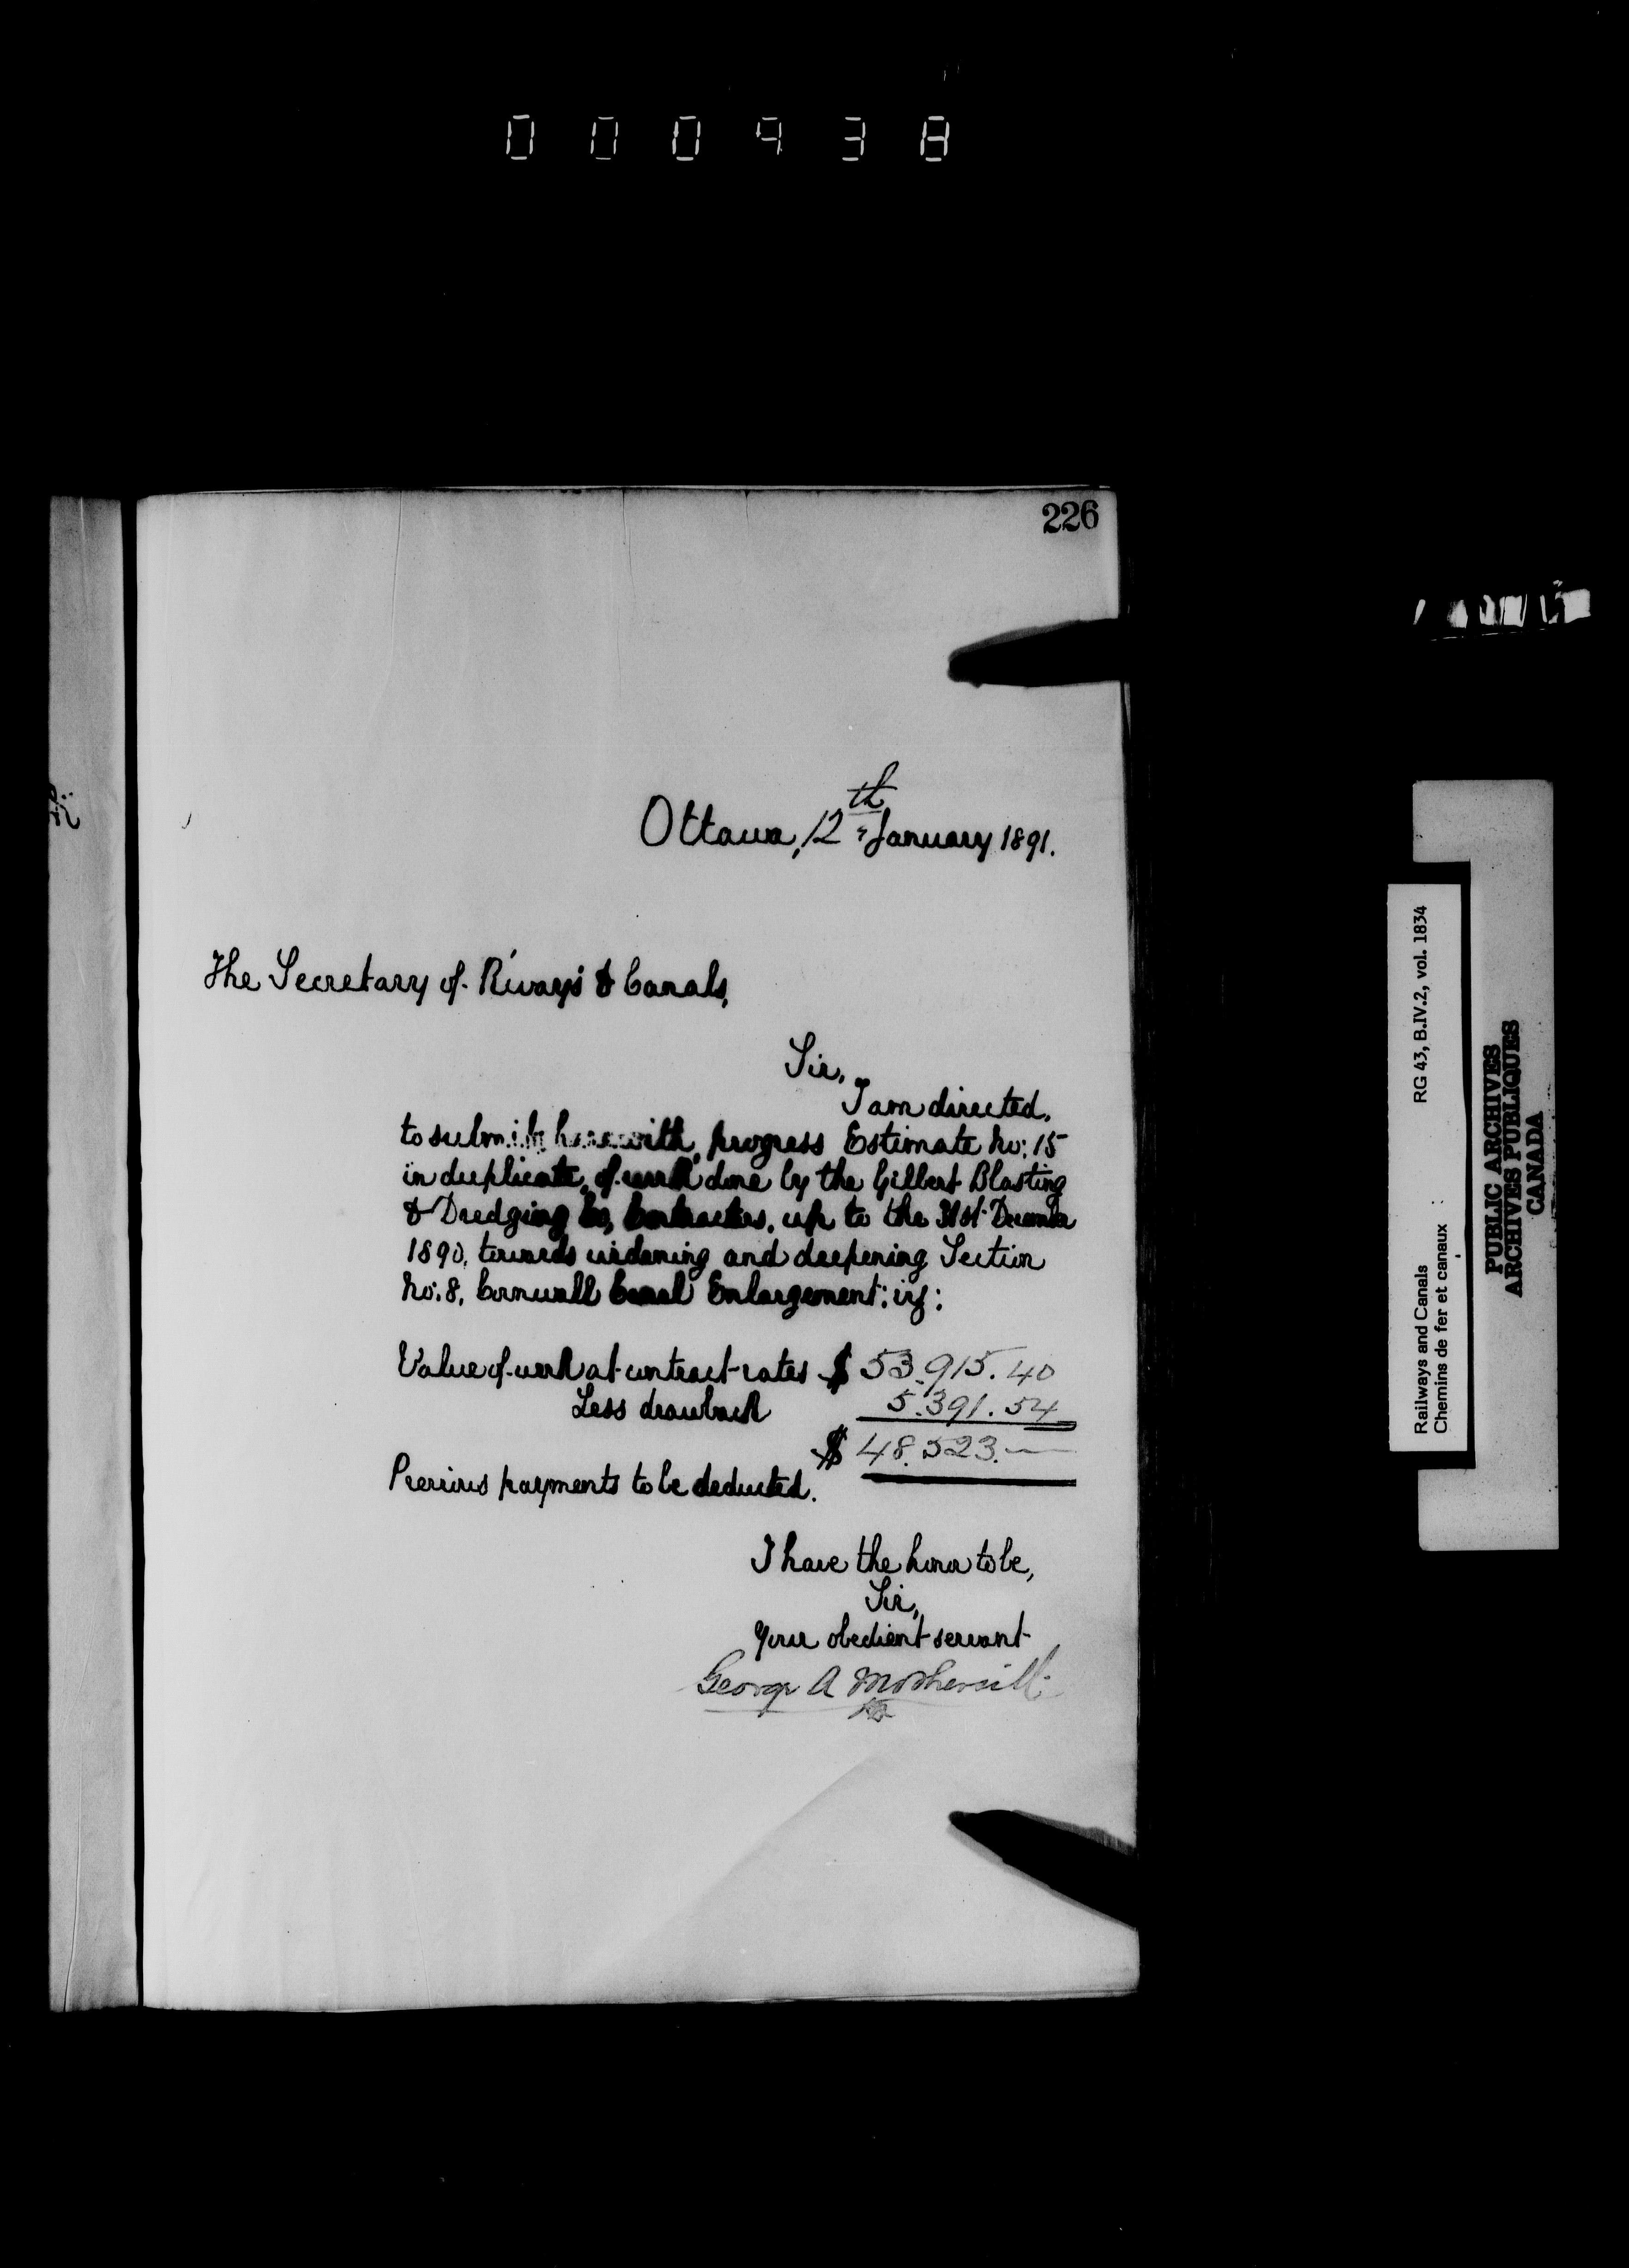 000938
226
Ottawa, 12th January 1891.
The Secretary of R'ways & Canals,
Sir,
I am directed,
to submit herewith, progress Estimate No: 15
in duplicate, of work done by the Gilbert Blasting
& Dredging Co, Contractors, up to the 31st December
1890, towards widening and deepening Section
No: 8, Cornwall Canal Enlargement: viz:
Value of work at contract rates $ 53.915.40
Less drawback 5.391.54
$ 48.523.—
Previous payments to be deducted.
I have the honor to be,
Sir,
Your obedient servant
George A Mothersill
Railways and Canals RG 43, B.IV.2, vol. 1834
Chemins de fer et canaux
PUBLIC ARCHIVES
ARCHIVES PUBLIQUES
CANADA